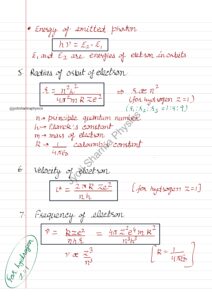 • Energy of emitted photon
hν = E₂ - E₁
E₁ and E₂ are energies of electron in orbits
5. Radius of orbit of electron
r = n²h² / 4π²m k Ze² ⇒ r ∝ n²
(for hydrogen Z=1)
(r₁:r₂:r₃ = 1:4:9)
n → principle quantum number
h → Planck's constant
m → mass of electron
k → 1/4πε₀ coulombic constant
6. Velocity of electron
v = 2πk Ze² / nh [for hydrogen Z=1]
7. Frequency of electron
ν = kZe² / nhr = 4π²Z²e⁴mk² / n³h³
ν ∝ Z² / n³ [k = 1/4πε₀]
For hydrogen